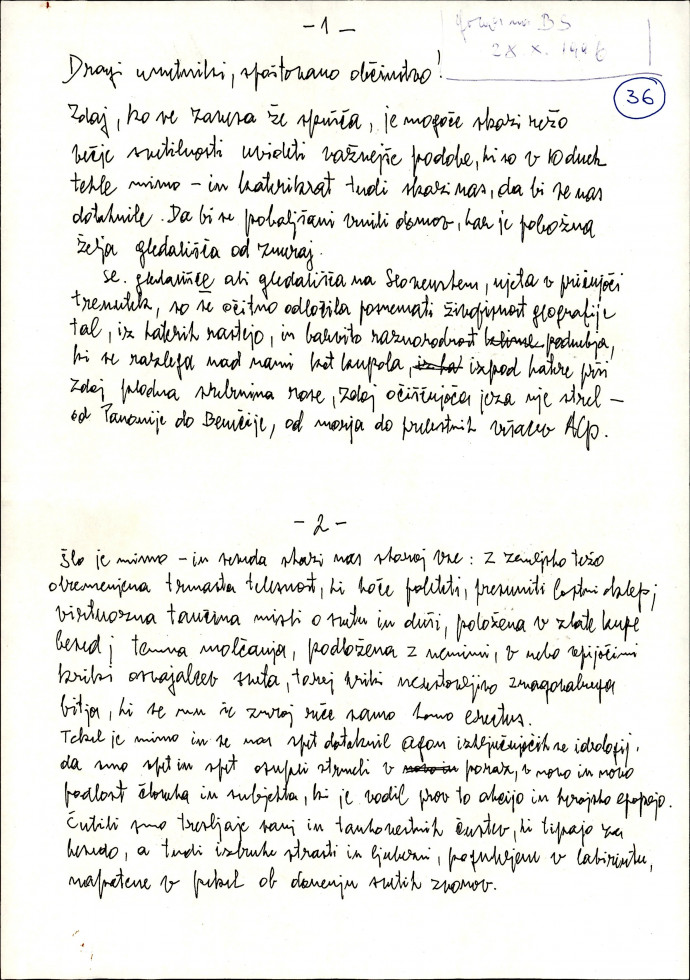 – 1 –
Govor na BS
2X X. 1996
36
Dragi umetniki, spoštovano občinstvo!
Zdaj, ko se zavesa že spušča, je mogoče skozi režo
večje svetilnosti uvideti važnejše podobe, ki so v 10 dneh
tekle mimo – in katerikrat tudi skozi nas, da bi se nas
dotaknile. Da bi se poboljšani vrnili domov, kar je pobožna
želja gledališča od zmeraj.
Se. gledališče ali gledališča na Slovenskem, ujeta v pričujoči
trenutek, so se očitno odločila posnemati živopisnost geografije
tal, iz katerih rastejo, in barvito raznorodnost klime podnebja,
ki se razlega nad nami kot kupola, izpod katere prši
zdaj plodna srebrnina rose, zdaj očiščujoča jeza nje strel –
od Panonije do Benečije, od morja do prelestnih višav Alp.
– 2 –
Šlo je mimo – in seveda skozi nas skoraj vse: z zemeljsko težo
obremenjena trmasta telesnost, ki hoče poleteti, presuniti lastni oklep;
virtuozna tančina misli o svetu in duši, položena v zlate kupe
besed; temina molčanja, podložena z nemimi, v nebo vpijočimi
kriki osvajalcev sveta, torej kriki neustavljivo zmagovalnega
bitja, ki se mu že zmeraj reče samo homo erectus.
Tekel je mimo in se nas spet dotaknil agon izključujočih se ideologij.
da smo spet in spet osupli strmeli v novo in poraz, v novo in novo
podlost človeka in subjekta, ki je vodil prav to akcijo in herojsko epopejo.
Čutili smo tresljaje sanj in tankovestnih čustev, ki tipajo za
besedo, a tudi izbruhe strasti in ljubezni, pogubljene v labirintu,
napetene v pekel ob donenju svetih zvonov.